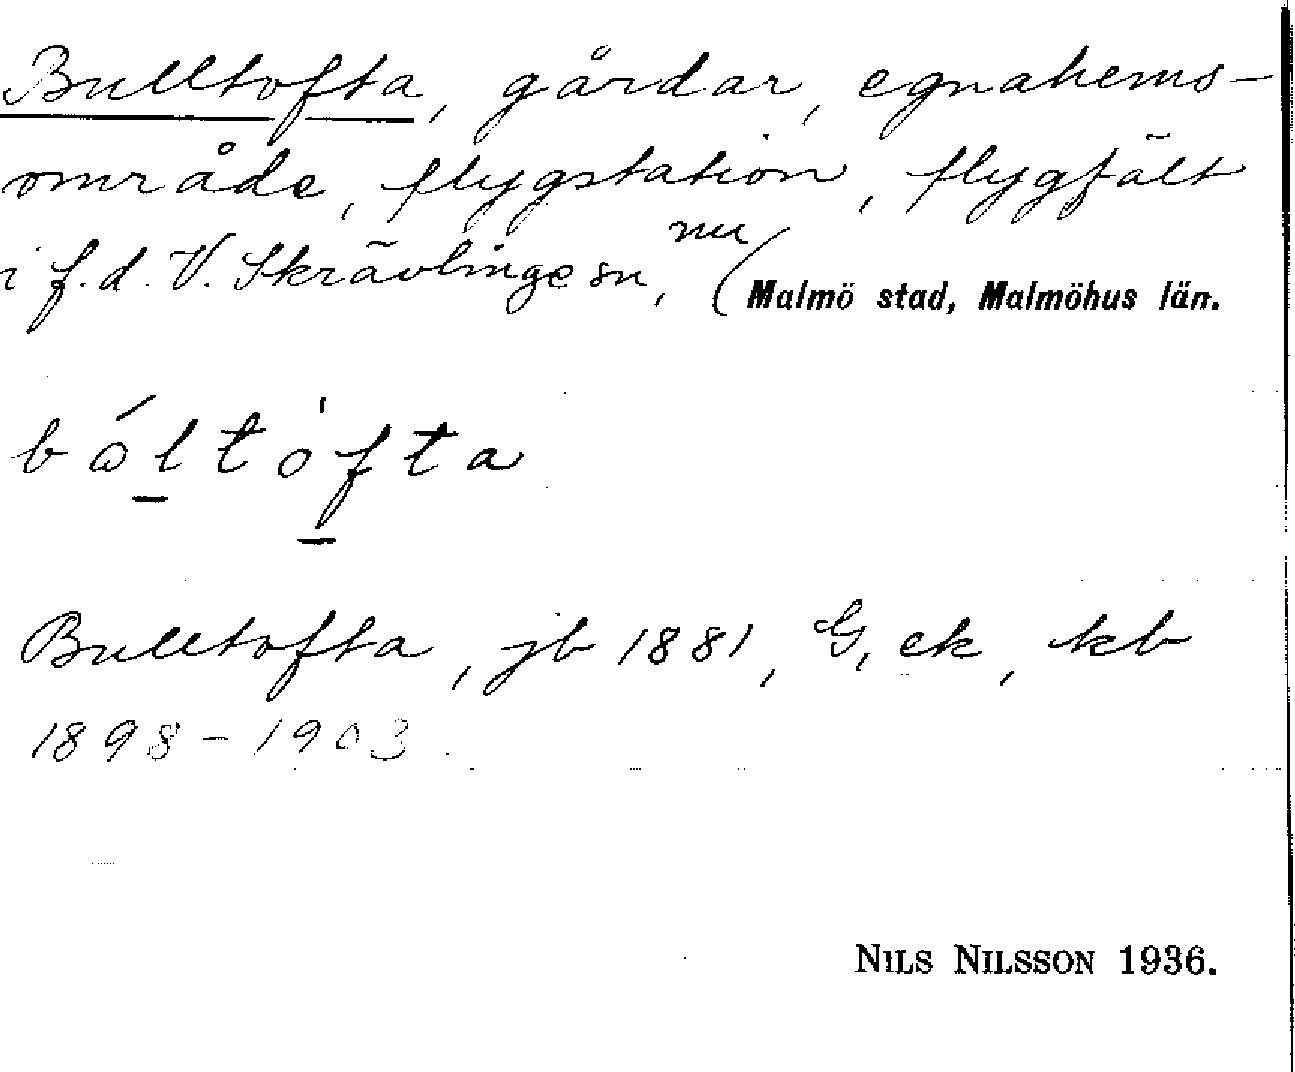 Bulltofta, gårdar, egnahems-
område, flygstation, flygfält
i f.d. V. Skrävlinge sn, nu Malmö stad, Malmöhus län.
bóltòfta
Bulltofta, jb 1881, G, ek, kb
1898-1903.
NILS NILSSON 1936.